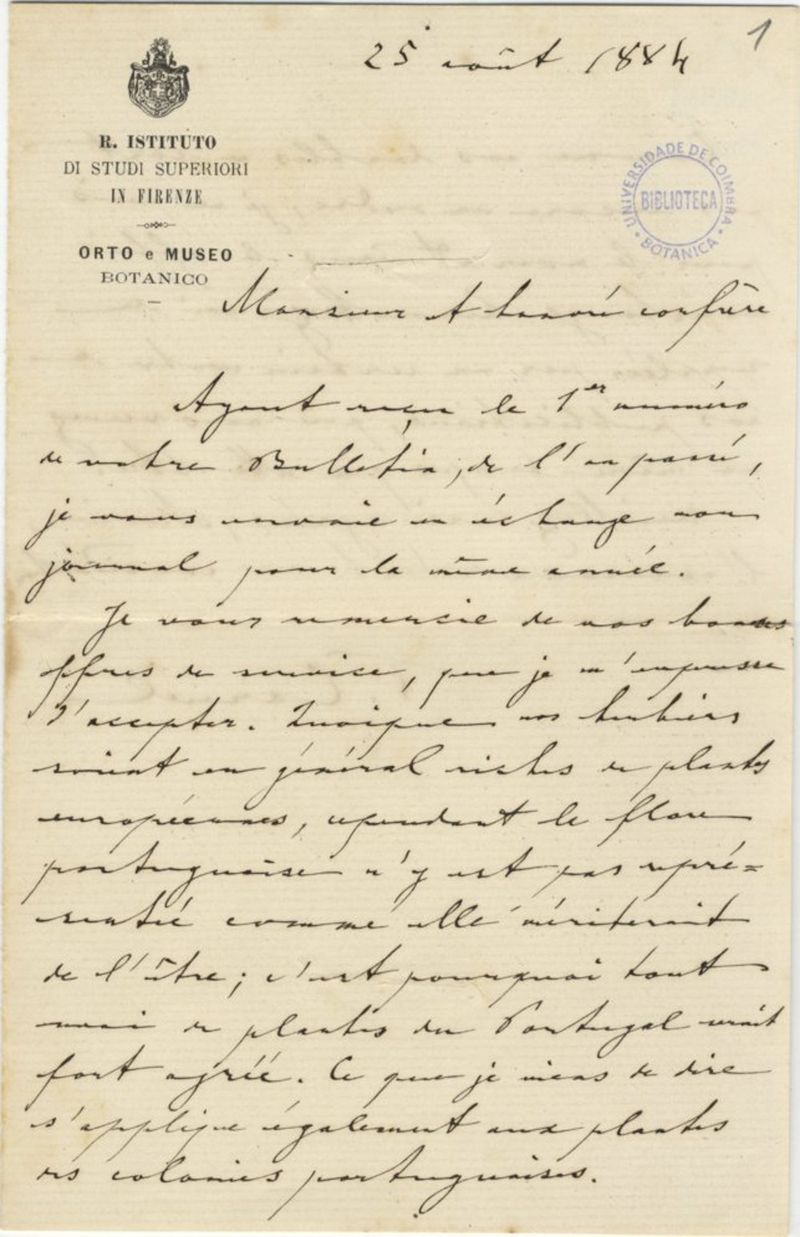 1
25 août 1884
R. ISTITUTO
DI STUDI SUPERIORI
IN FIRENZE
ORTO e MUSEO
BOTANICO
UNIVERSIDADE DE COIMBRA
BIBLIOTECA
BOTANICA
Monsieur et honoré confrère
Ayant reçu le 1er numéro
de votre Bulletin, de l'an passé,
je vous envoie en échange mon
journal pour la même année.
Je vous remercie de vos bonnes
offres de service, que je m'empresse
d'accepter. Quoique nos herbiers
soient en général riches de plantes
européennes, cependant la flore
portugaise n'y est pas repré=
sentée comme elle mériterait
de l'être; c'est pourquoi tout
envoi de plantes du Portugal serait
fort agréé. Ce que je viens de dire
s'applique également aux plantes
des colonies portugaises.